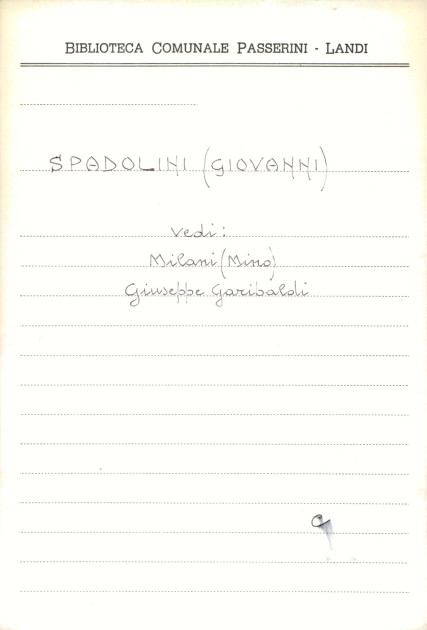 BIBLIOTECA COMUNALE PASSERINI - LANDI
SPADOLINI (GIOVANNI)
vedi:
Milani (Mino)
Giuseppe Garibaldi